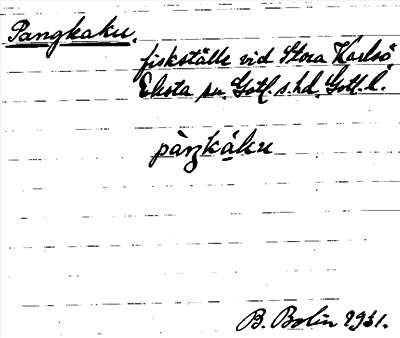 Pangkaku.
fiskställe vid Stora Karlsö
Eksta sn. Gotl. s. hd. Gotl. l.
pàŋkáku
B. Bolin 1931.